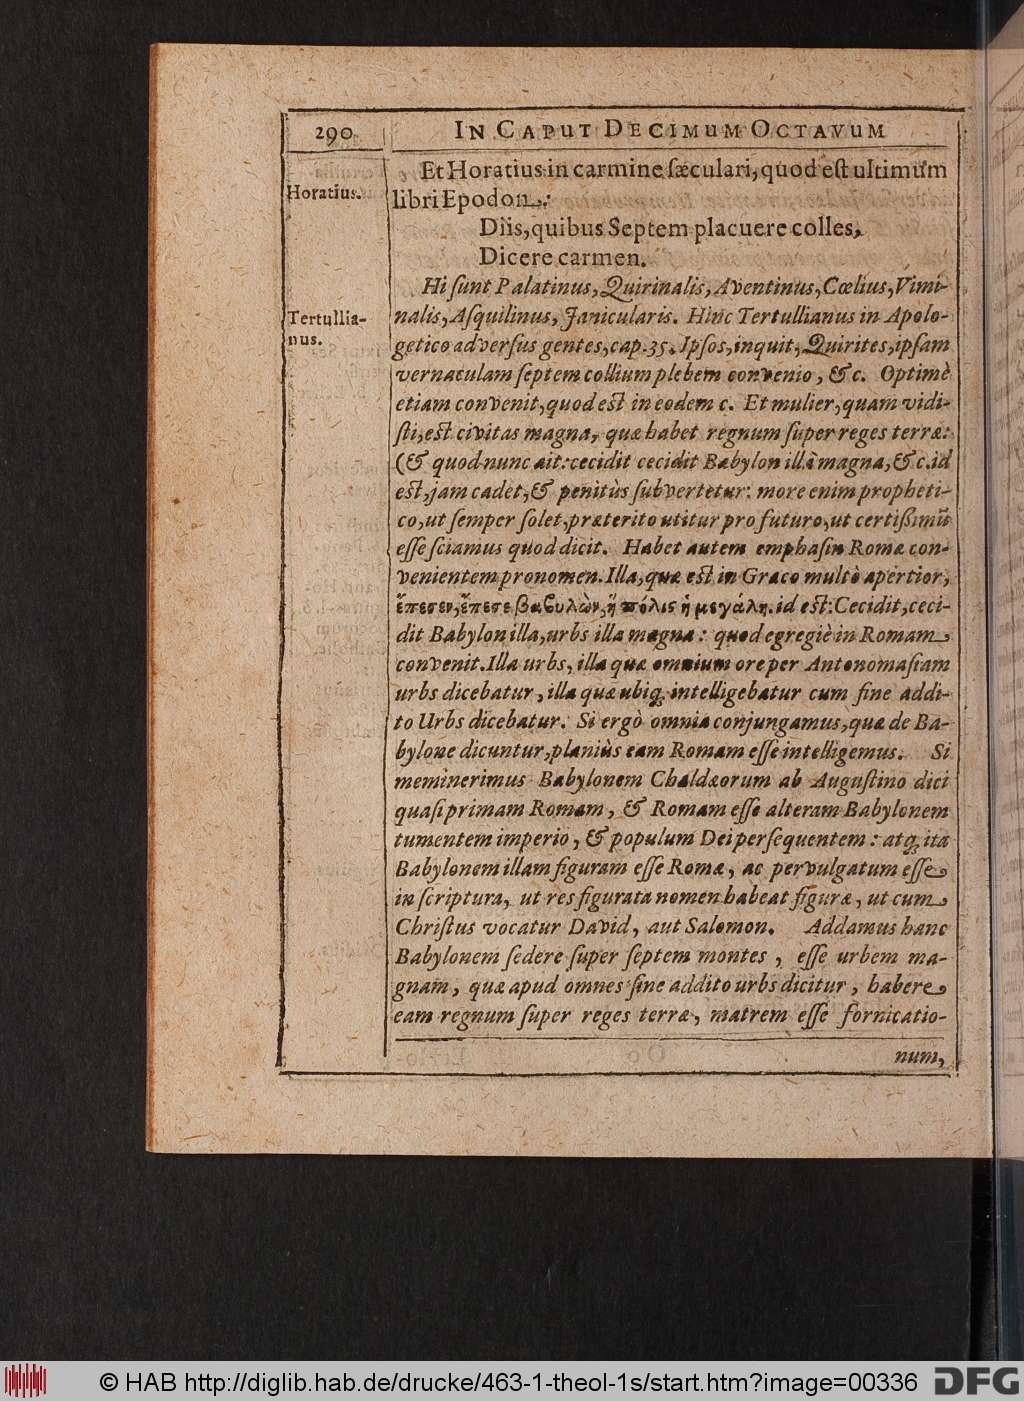 290
IN CAPUT DECIMUM OCTAVUM
Et Horatius in carmine sæculari, quod est ultimum
Horatius.
libri Epodon:
Diis, quibus Septem placuere colles,
Dicere carmen.
Hi sunt Palatinus, Quirinalis, Aventinus, Cœlius, Vimi-
Tertullia-
nus.
nalis, Asquilinus, Janicularis. Hinc Tertullianus in Apolo-
getico adversus gentes, cap. 35. Ipsos, inquit, Quirites, ipsam
vernaculam septem collium plebem convenio, & c. Optimè
etiam convenit, quod est in eodem c. Et mulier, quam vidi-
sti, est civitas magna, quæ habet regnum super reges terræ:
(& quod nunc ait: cecidit cecidit Babylon illa magna, & c. id
est, jam cadet, & penitùs subvertetur: more enim propheti-
co, ut semper solet, præterito utitur pro futuro, ut certißimũ
esse sciamus quod dicit. Habet autem emphasin Romæ con-
venientem pronomen. Illa, quæ est in Græco multò apertior,
ἔπεσεν, ἔπεσε βαβυλὼν, ἡ πόλις ἡ μεγάλη. id est: Cecidit, ceci-
dit Babylon illa, urbs illa magna: quod egregiè in Romam
convenit. Illa urbs, illa quæ omnium ore per Antonomasiam
urbs dicebatur, illa quæ ubiq; intelligebatur cum sine addi-
to Urbs dicebatur. Si ergò omnia conjungamus, quæ de Ba-
bylone dicuntur, planiùs eam Romam esse intelligemus. Si
meminerimus Babylonem Chaldæorum ab Augustino dici
quasi primam Romam, & Romam esse alteram Babylonem
tumentem imperio, & populum Dei persequentem: atq; ita
Babylonem illam figuram esse Romæ, ac pervulgatum esse
in scriptura, ut res figurata nomen habeat figuræ, ut cum
Christus vocatur David, aut Salomon. Addamus hanc
Babylonem sedere super septem montes, esse urbem ma-
gnam, quæ apud omnes sine addito urbs dicitur, habere
eam regnum super reges terræ, matrem esse fornicatio-
num,
© HAB http://diglib.hab.de/drucke/463-1-theol-1s/start.htm?image=00336
DFG